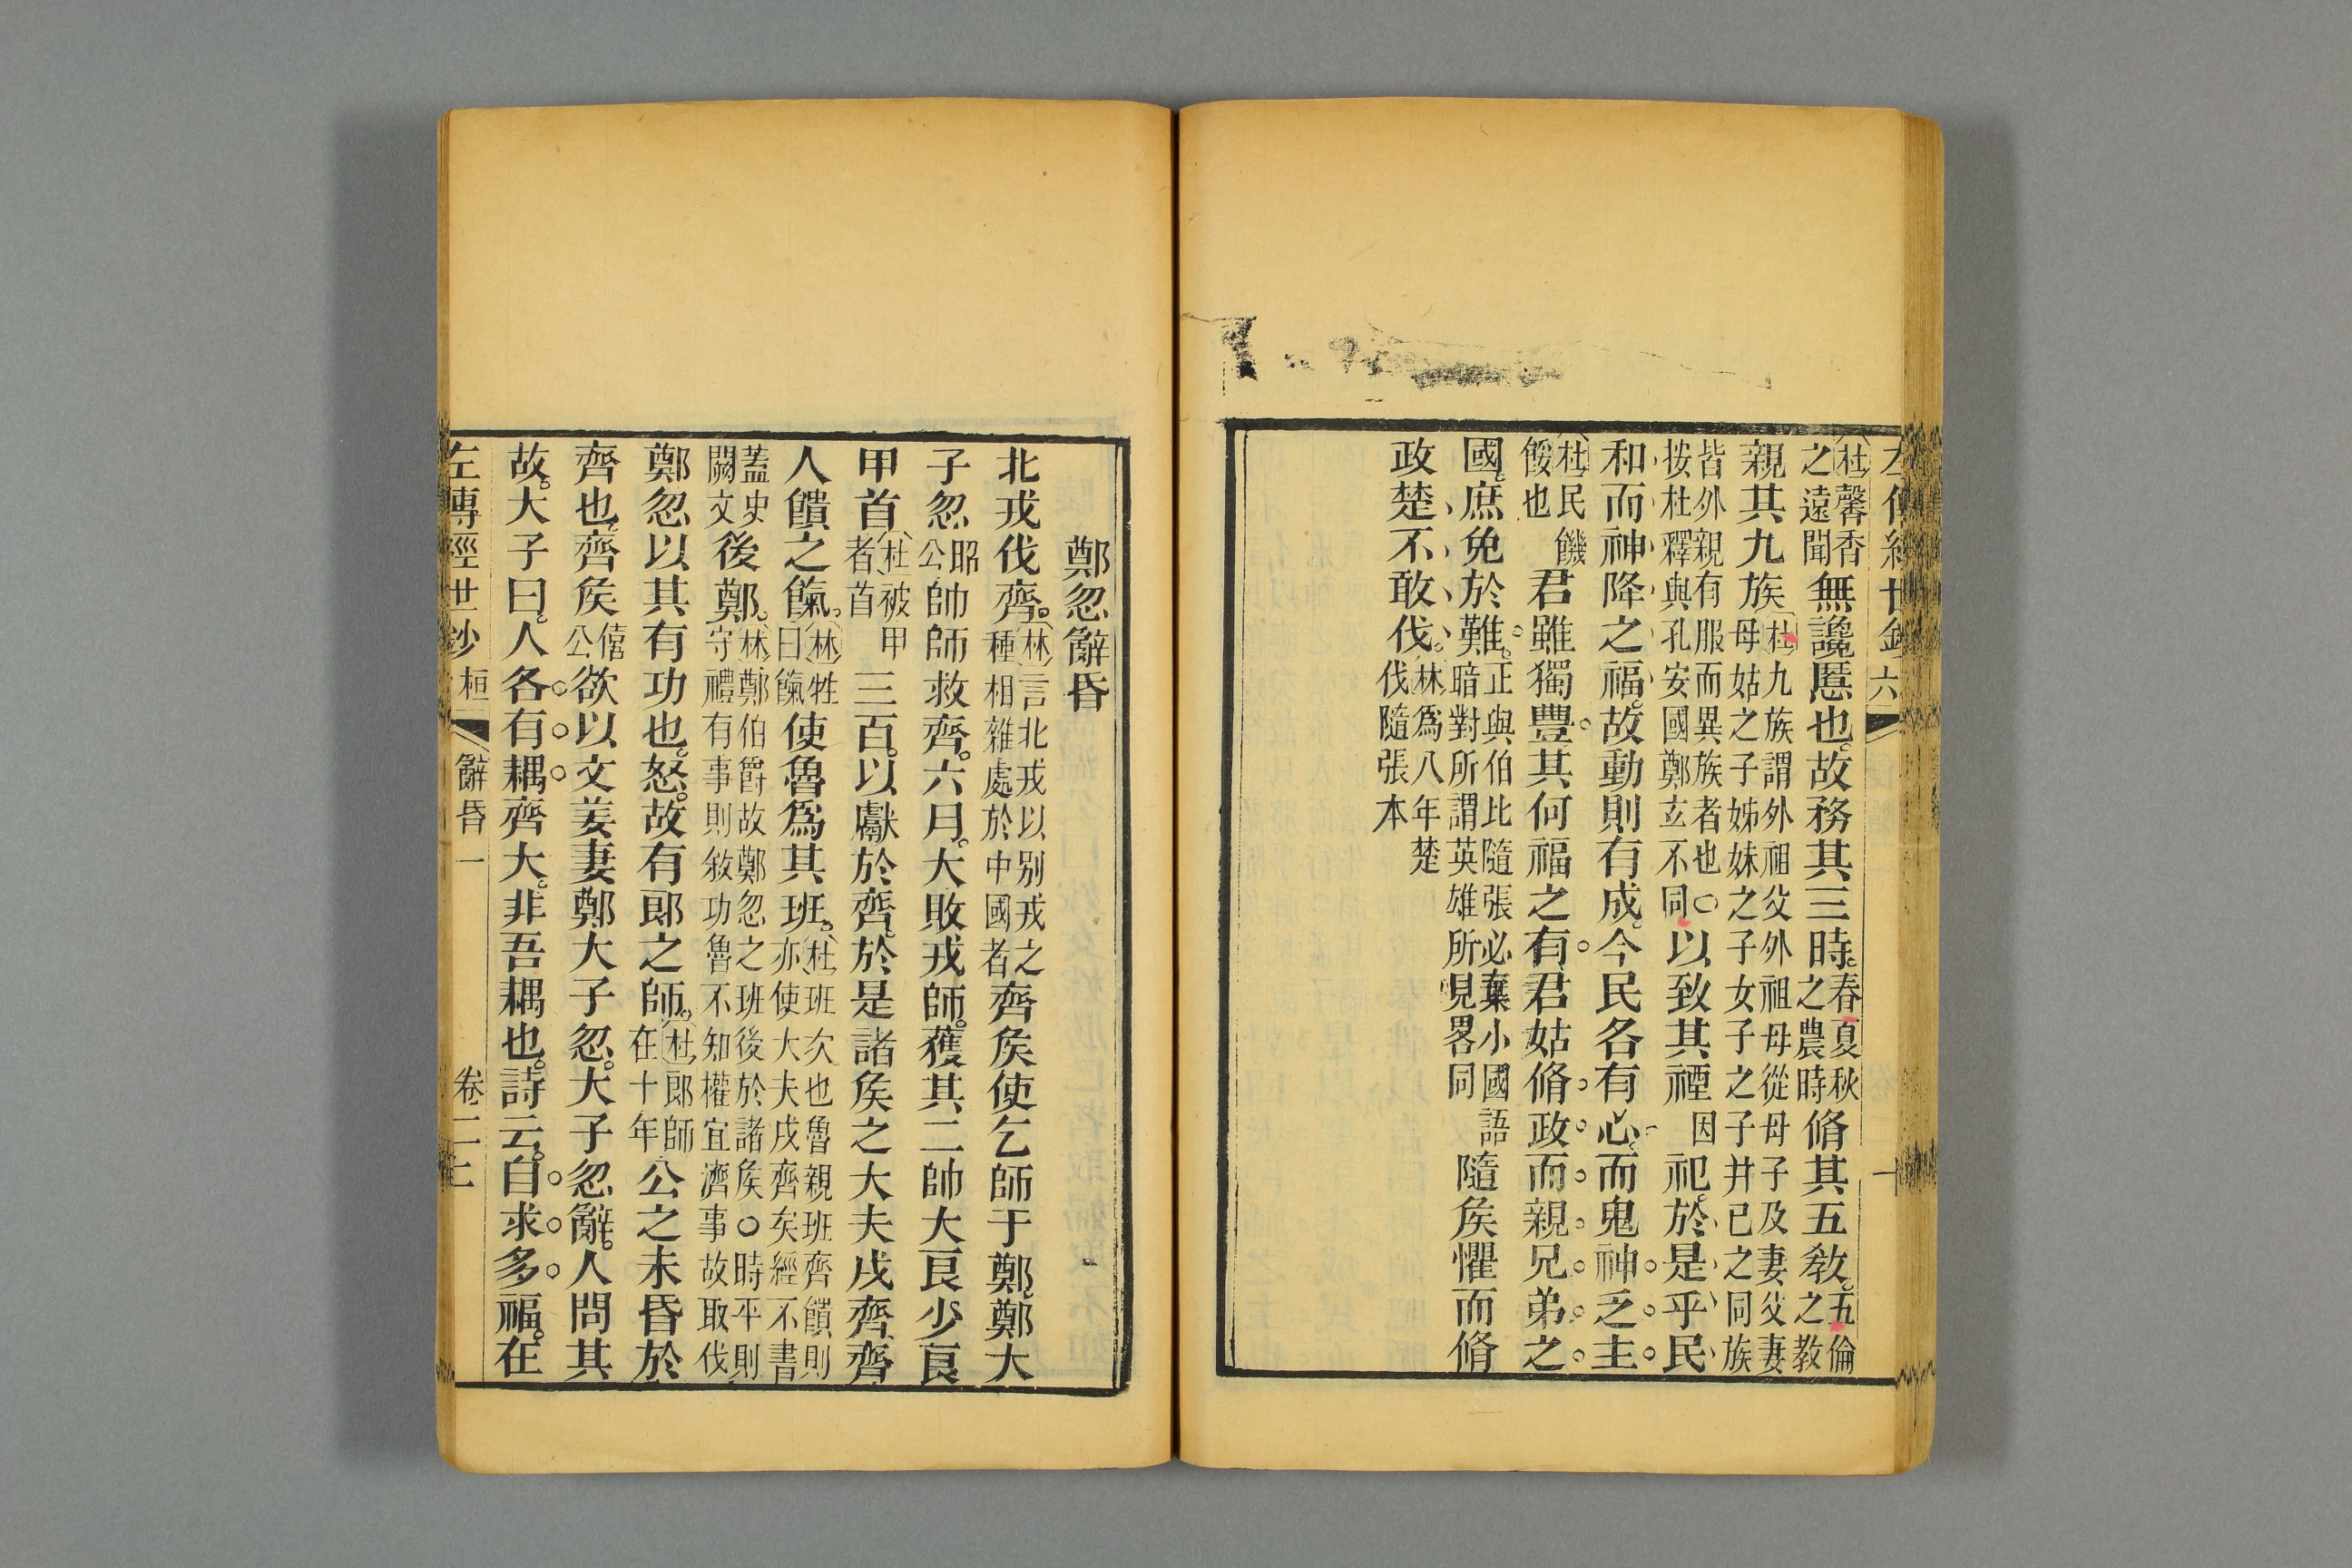 杜馨香之遠聞無讒慝也故務其三時春夏秋之農時脩其五教五倫之教
親其九族杜九族謂外祖父外祖母從母子及妻父妻母姑之子姊妹之子女子之子幷已之同族
皆外親有服而異族者也○按杜釋與孔安國鄭玄不同以致其禋因祀於是乎民
和而神降之福故動則有成今民各有心而鬼神乏主
杜民饑餒也君雖獨豐其何福之有君姑脩政而親兄弟之
國庶免於難正與伯比隨張必棄小國語暗對所謂英雄所見畧同隨矦懼而脩
政楚不敢伐林爲八年楚伐隨張本
鄭忽辭昏
北戎伐齊林言北戎以别戎之種相雜處於中國者齊矦使乞師于鄭鄭大
子忽昭公帥師救齊六月大敗戎師獲其二帥大良少良
甲首杜被甲者首三百以獻於齊於是諸矦之大夫戍齊齊
人饋之餼林牲曰餼使魯爲其班杜班次也魯親班齊饋則亦使大夫戍齊矣經不書
蓋史闕文後鄭林鄭伯爵故鄭忽之班後於諸矦○時平則守禮有事則敘功魯不知權宜濟事故取伐
鄭忽以其有功也怒故有郎之師杜郎師在十年公之未昏於
齊也齊矦僖公欲以文姜妻鄭大子忽大子忽辭人問其
故大子曰人各有耦齊大非吾耦也詩云自求多福在
左傳經世鈔 桓 辭昏一 卷二上